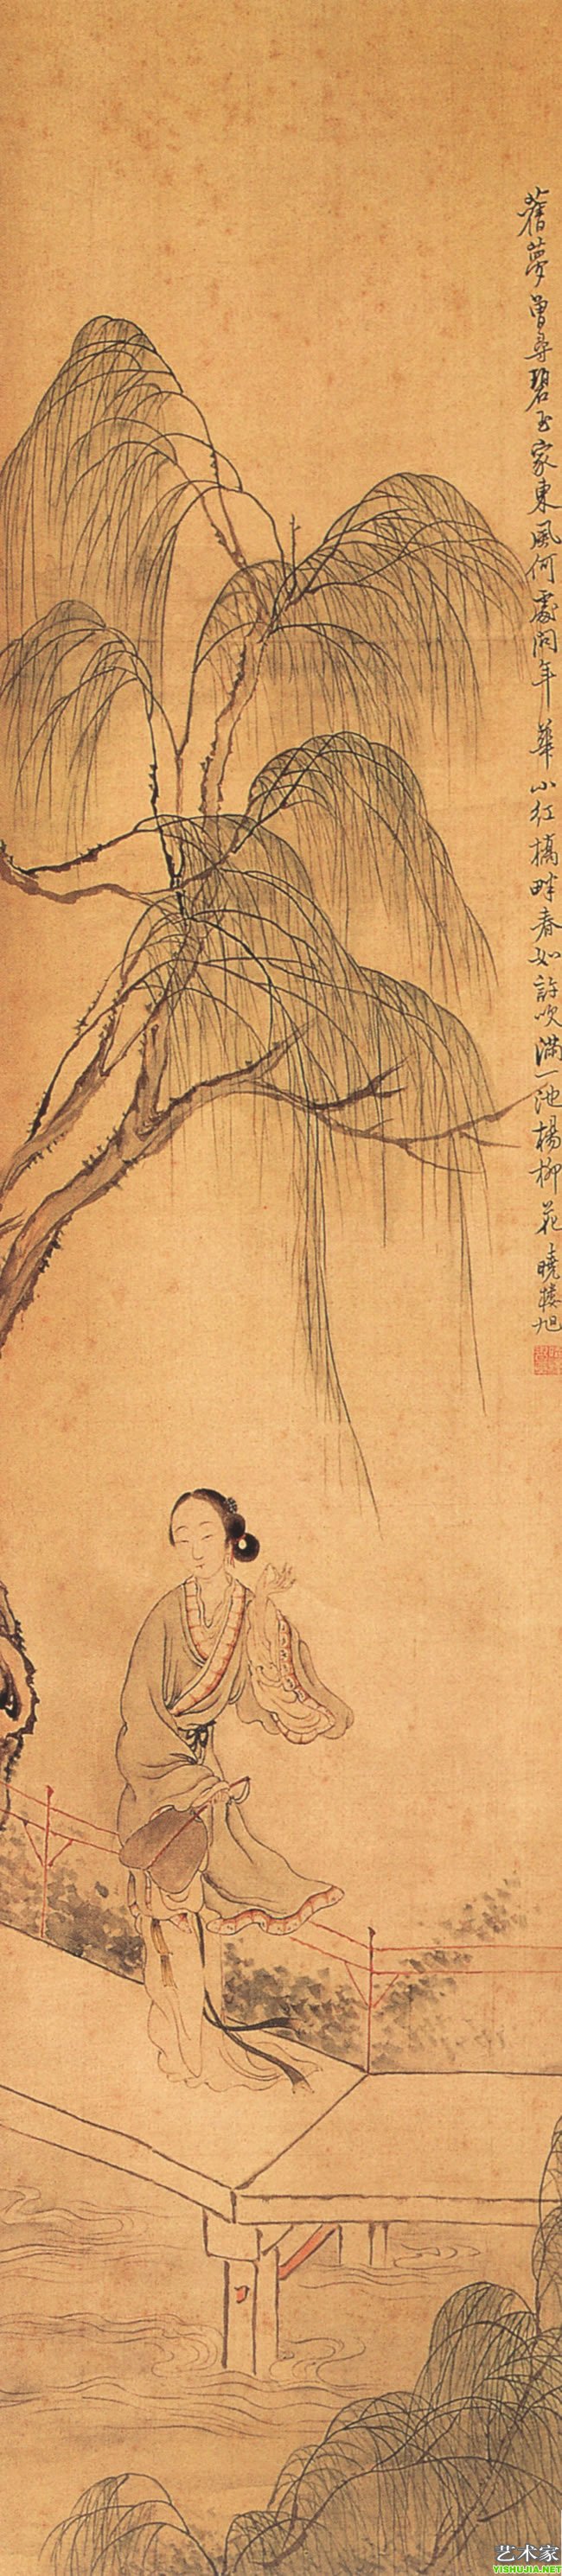 舊夢曾尋碧玉家東風何處問年華小紅橋畔春如許吹滿一池楊柳花 曉樓旭
艺术家
YISHUJIA.NET